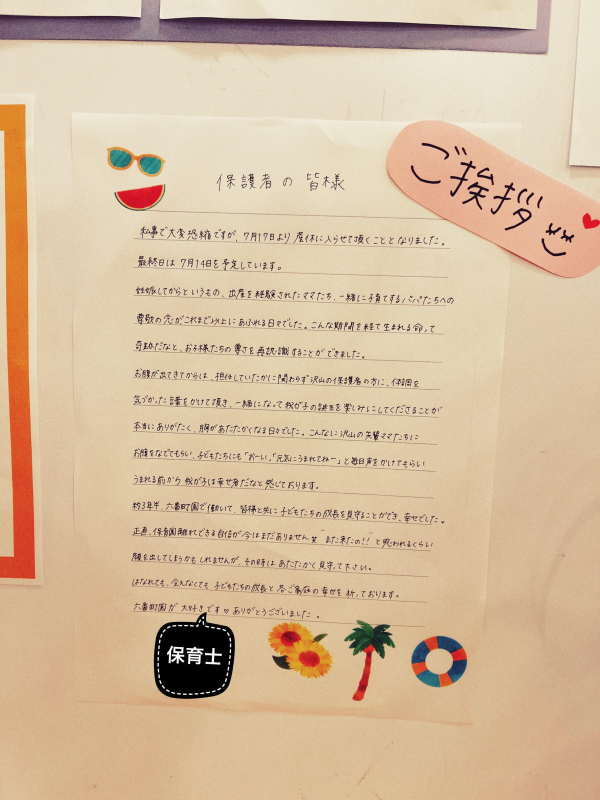 ご挨拶
保護者の皆様
私事で大変恐縮ですが、7月17日より産休に入らせて頂くこととなりました。
最終日は7月14日を予定しています。
妊娠してからというもの、出産を経験されたママたち、一緒に子育てするパパたちへの
尊敬の念がこれまで以上にあふれる日々でした。こんな期間を経て生まれる命って
奇跡だなと、お子様たちの尊さを再認識することができました。
お腹が出てきてからは、担任していたかに関わらず沢山の保護者の方に、体調を
気づかった言葉をかけて頂き、一緒になって我が子の誕生を楽しみにしてくださることが
本当にありがたく、胸があたたかくなる日々でした。こんなに沢山の先輩ママたちに
お腹をなでてもらい、子どもたちにも「おーい」「元気にうまれてねー」と毎日声をかけてもらい
うまれる前から我が子は幸せ者だなと感じております。
約3年半、六番町園で働いて、皆様と共に子どもたちの成長を見守ることができ、幸せでした。
正直、保育園離れできる自信が今はまだありません笑 "また来たの!!"と思われるくらい
顔を出してしまうかもしれませんが、その時はあたたかく見守って下さい。
はなれても、会えなくても子どもたちの成長と各ご家庭の幸せを祈っております。
六番町園が大好きです♡ありがとうございました。
保育士